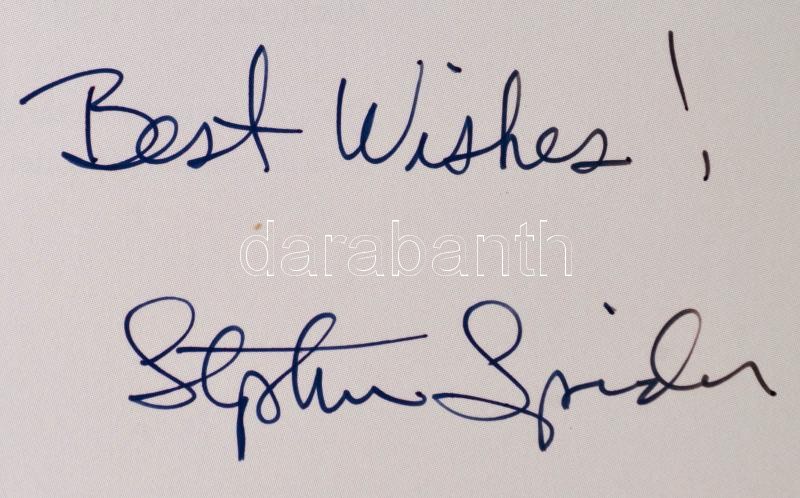 Best Wishes!
darabanth
Stephen Spender